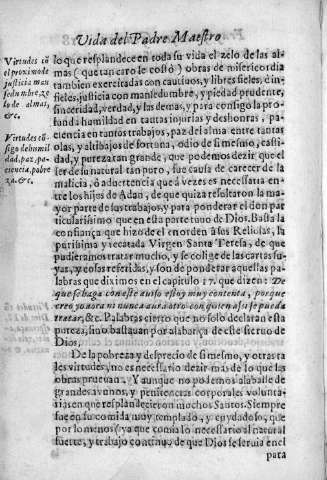 Vida del Padre Maestro
Virtudes cõ
el proximo de
justicia man
sedumbre, ze
lo de almas,
&c.
Virtudes cõ
sigo de humil
dad, paz, pa-
ciencia, pobre
za. &c.
lo que resplandece en toda su vida el zelo de las al-
mas (que tan caro le costò) obras de misericordia
tambien exercitadas con cautiuos, y libres fieles, è in-
fieles, justicia con mansedumbre, y piedad prudente,
sinceridad, verdad, y las demas, y para consigo la pro-
funda humildad en tantas injurias y deshonras, pa-
ciencia en tantos trabajos, paz del alma entre tantas
olas, y altibajos de fortuna, odio de si mesmo, casti-
dad, y pureza tan grande, que podemos dezir que el
ser de su natural tan puro, fue causa de carecer de la
malicia, ò aduertencia que à vezes es necessaria en-
tre los hijos de Adan, de que quizà resultaron la ma-
yor parte de sus trabajos, y para ponderar el don par
ticularissimo que en esta parte tuuo de Dios. Basta la
confiança que hizo del en orden a sus Reliosas, la
purissima y recatada Virgen Santa Teresa, de que
pudieramos tratar mucho, y se colige de las cartas su-
yas, y cosas referidas, y son de ponderar aquellas pa-
labras que diximos en el capitulo 17. que dizen: De
que se haga con este auiso estoy muy contenta, porque
creo yo aora ni nunca aurà otro con quien assi se pueda
tratar, &c. Palabras cierto que no solo declaran esta
pureza, sino bastauan por alabança de este sieruo de
Dios.
De la pobreza y desprecio de si mesmo, y otras ta
les virtudes, no es necessario dezir mas de lo que las
obras prueuan. Y aunque no podemos alabarle de
grandes ayunos, y penitencias corporales volunta-
rias en que resplandecieron muchos Santos. Siempre
fue en su comida muy templado, y cuydadoso, que
por lo menos (ya que comia lo necessario al natural
fuerte, y trabajo continuo, de que Dios se seruia en el
para